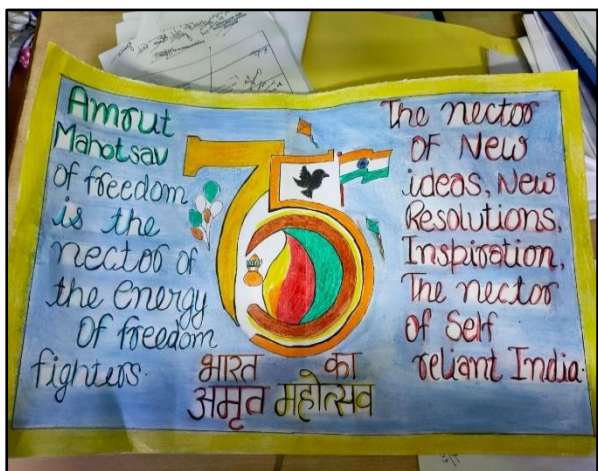 Amrut
Mahotsav
of freedom
is the
nector of
the energy
of freedom
fighters.
75
भारत का
अमृत महोत्सव
The nector
of New
ideas, New
Resolutions,
Inspiration,
The nector
of Self
reliant India.